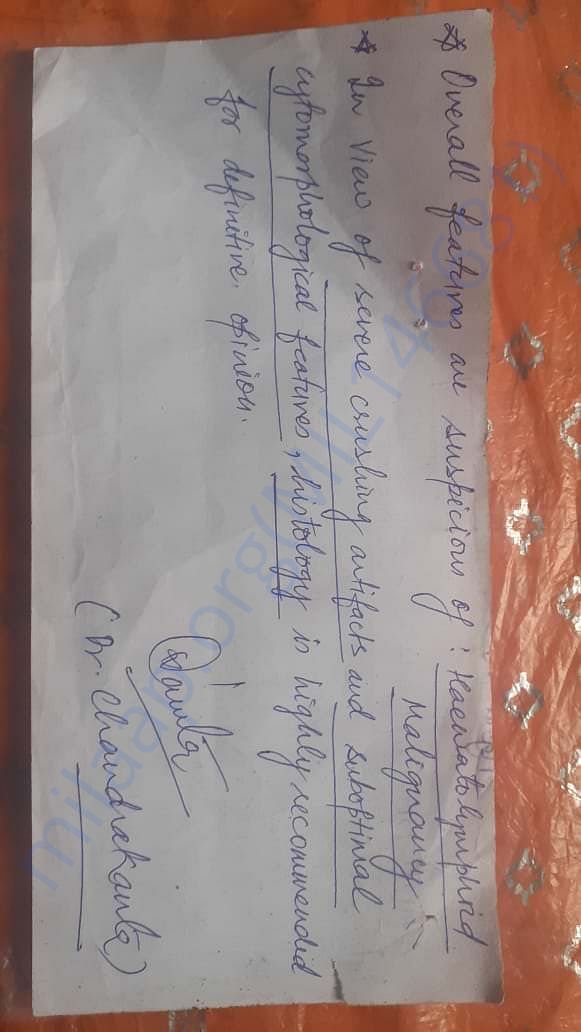 * Overall features are suspicious of : Haematolymphoid
Malignancy
* In view of severe crushing artifacts and suboptimal
cytomorphological features, histology is highly recommended
for definitive opinion.
(Dr. Chandrakanta)